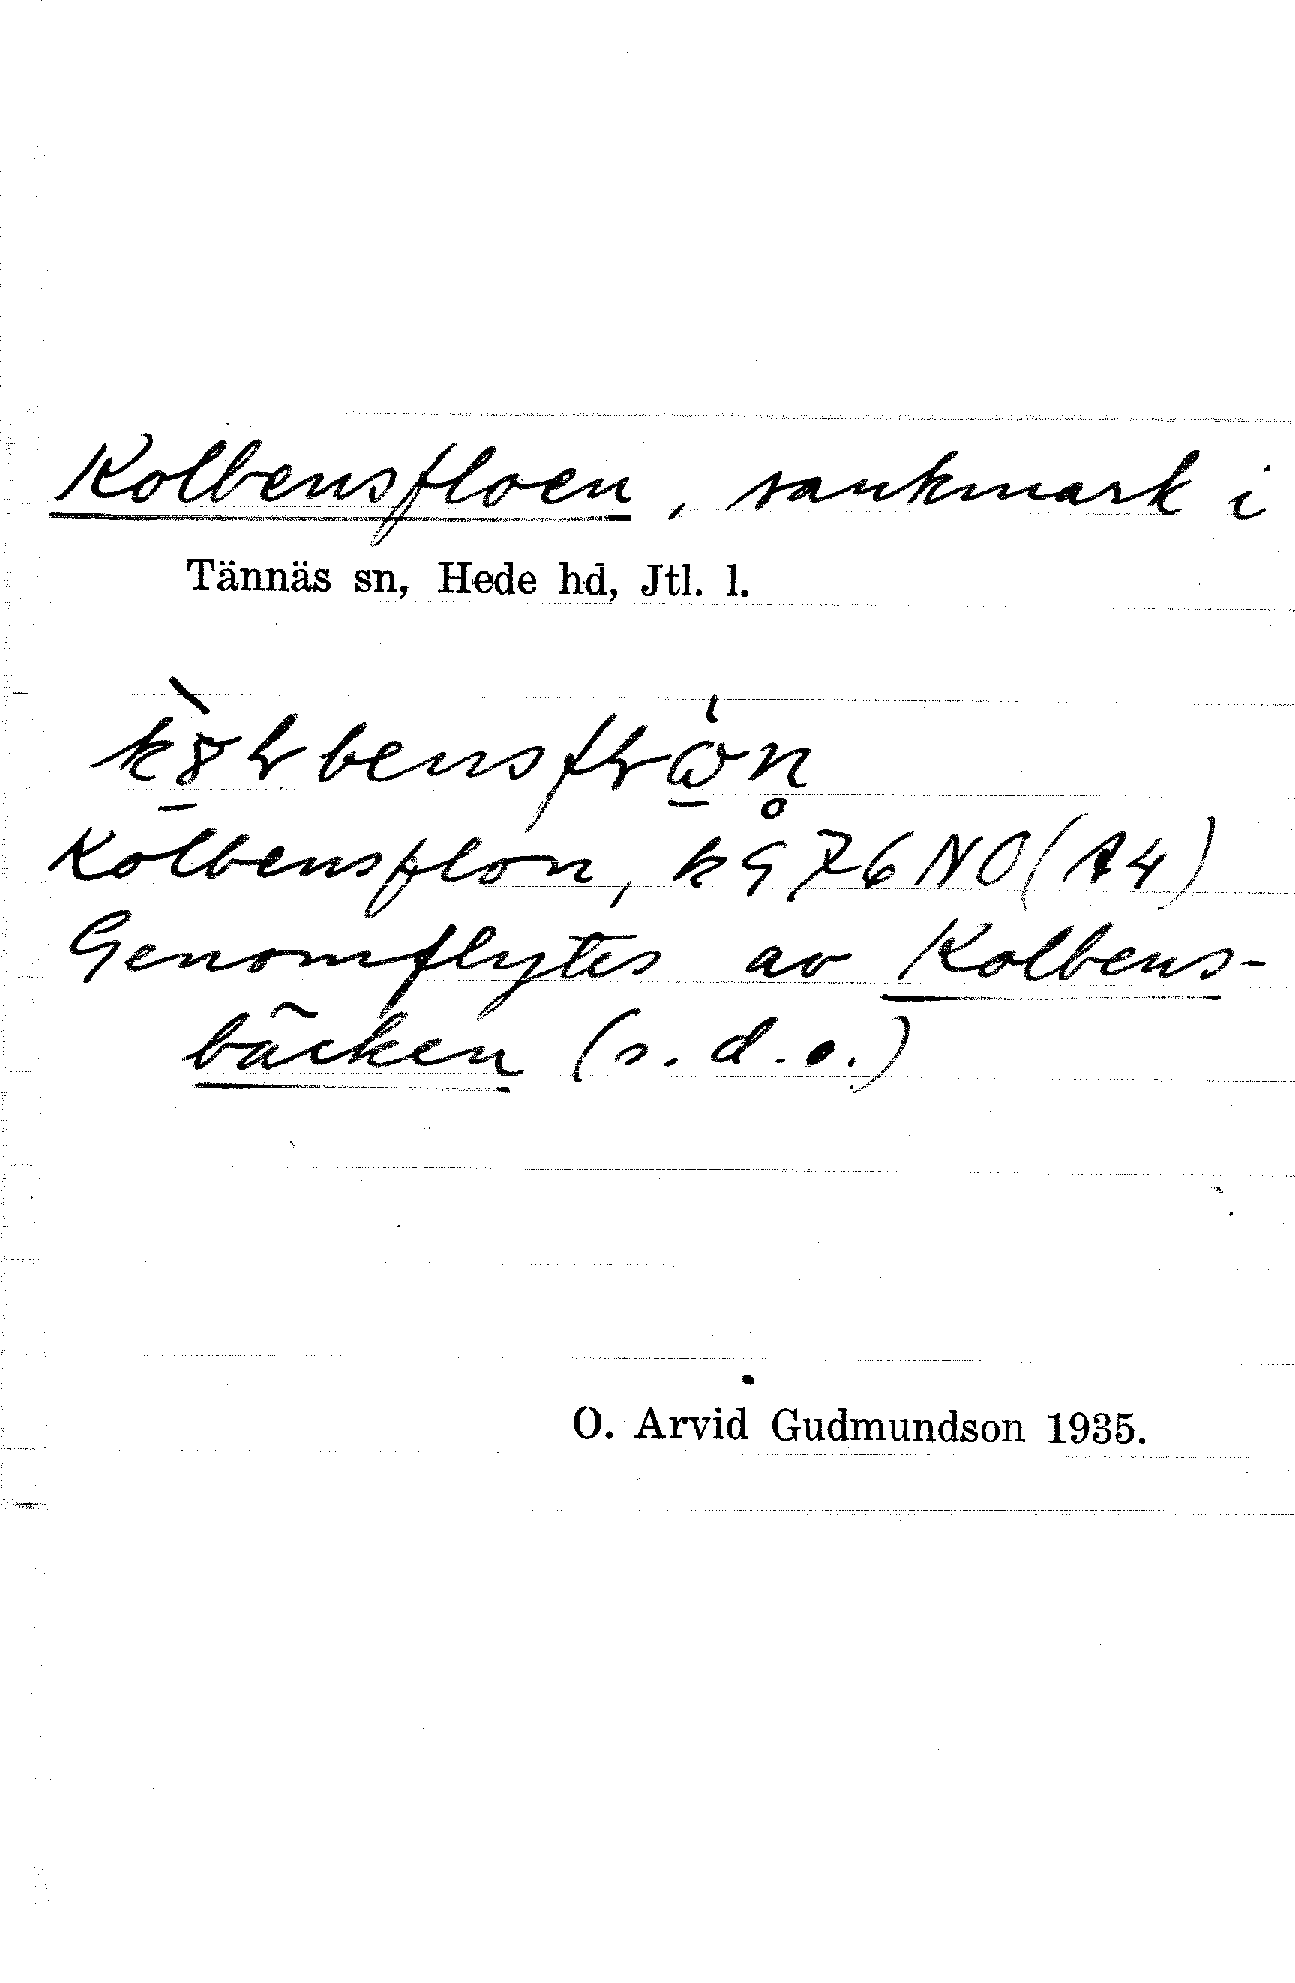 Kolbensfloen, sankmark i
Tännäs sn, Hede hd, Jtl. l.
Kolbensflon, kg 76 NO (A4)
Genomflytes av Kolbens-
bäcken (s. d. o.)
O. Arvid Gudmundson 1935.